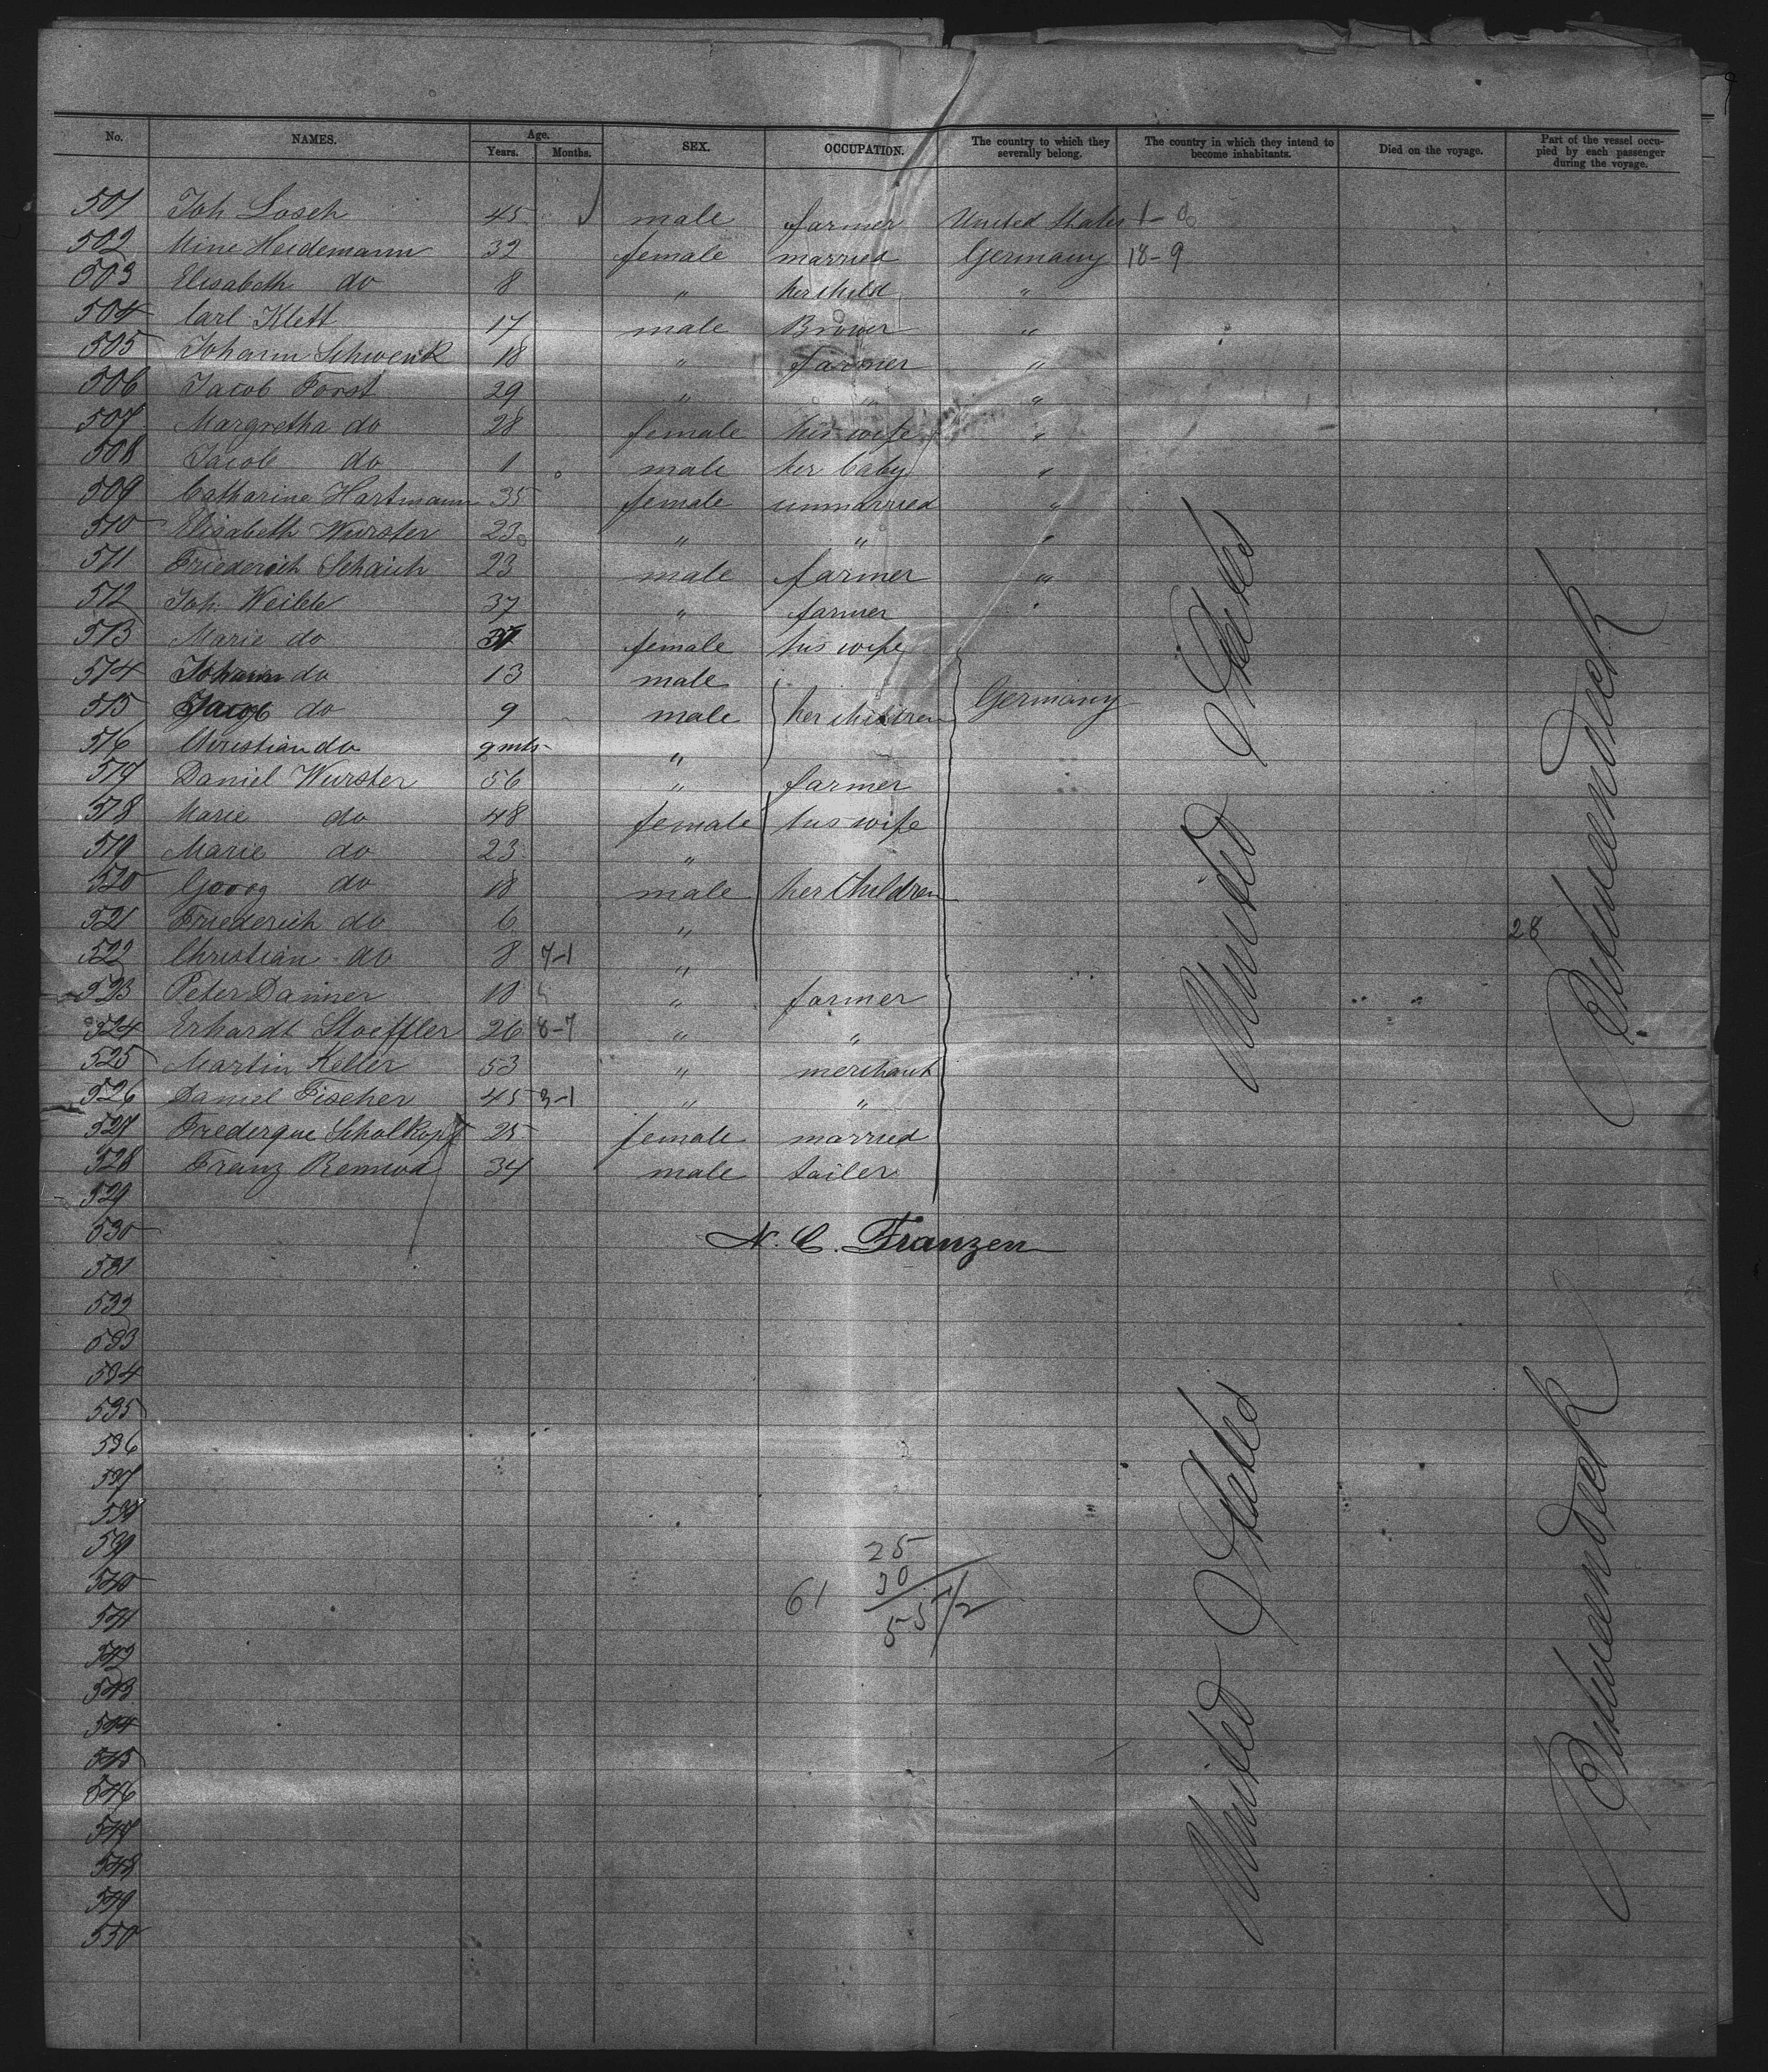 No. NAMES. Age. Years. Months. SEX. OCCUPATION. The country to which they severally belong. The country in which they intend to become inhabitants. Died on the voyage. Part of the vessel occupied by each passenger during the voyage.
501 Joh Losch 45 male farmer United States 1-
502 Mine Heidemann 32 female married Germany 18-9
503 Elisabeth do 8 " her child "
504 Carl Klett 17 male Brower "
505 Johann Schwenk 18 " farmer "
506 Jacob Forst 29 " " "
507 Margretha do 28 female his wife "
508 Jacob do 1 male her baby "
509 Catharine Hartmann 35 female unmarried "
510 Elisabeth Wurster 23 " " "
511 Friederich Schaich 23 male farmer "
512 Joh. Weible 37 " farmer "
513 Marie do 37 female his wife
514 Johann do 13 male
515 Jacob do 9 male her children Germany
516 Christian do 9 mts "
517 Daniel Wurster 56 " farmer
518 Marie do 48 female his wife
519 Marie do 23 "
520 Georg do 18 male her Children
521 Friederich do 6 " 28
522 Christian do 8 7-1 "
523 Peter Danner 18 " farmer
524 Erhardt Stoeffler 26 8-7 " "
525 Martin Keller 53 " merchant
526 Daniel Fischer 45 3-1 " "
527 Frederque Scholkopf 25 female married
528 Franz 34 male tailer
529
530 N. C. Franzen
531
532
533
534
535
536
537
538
539 25
540 30
541 61 55/2
542
543
544
545
546
547
548
549
550
United States
Zwischendeck
United States
Zwischendeck